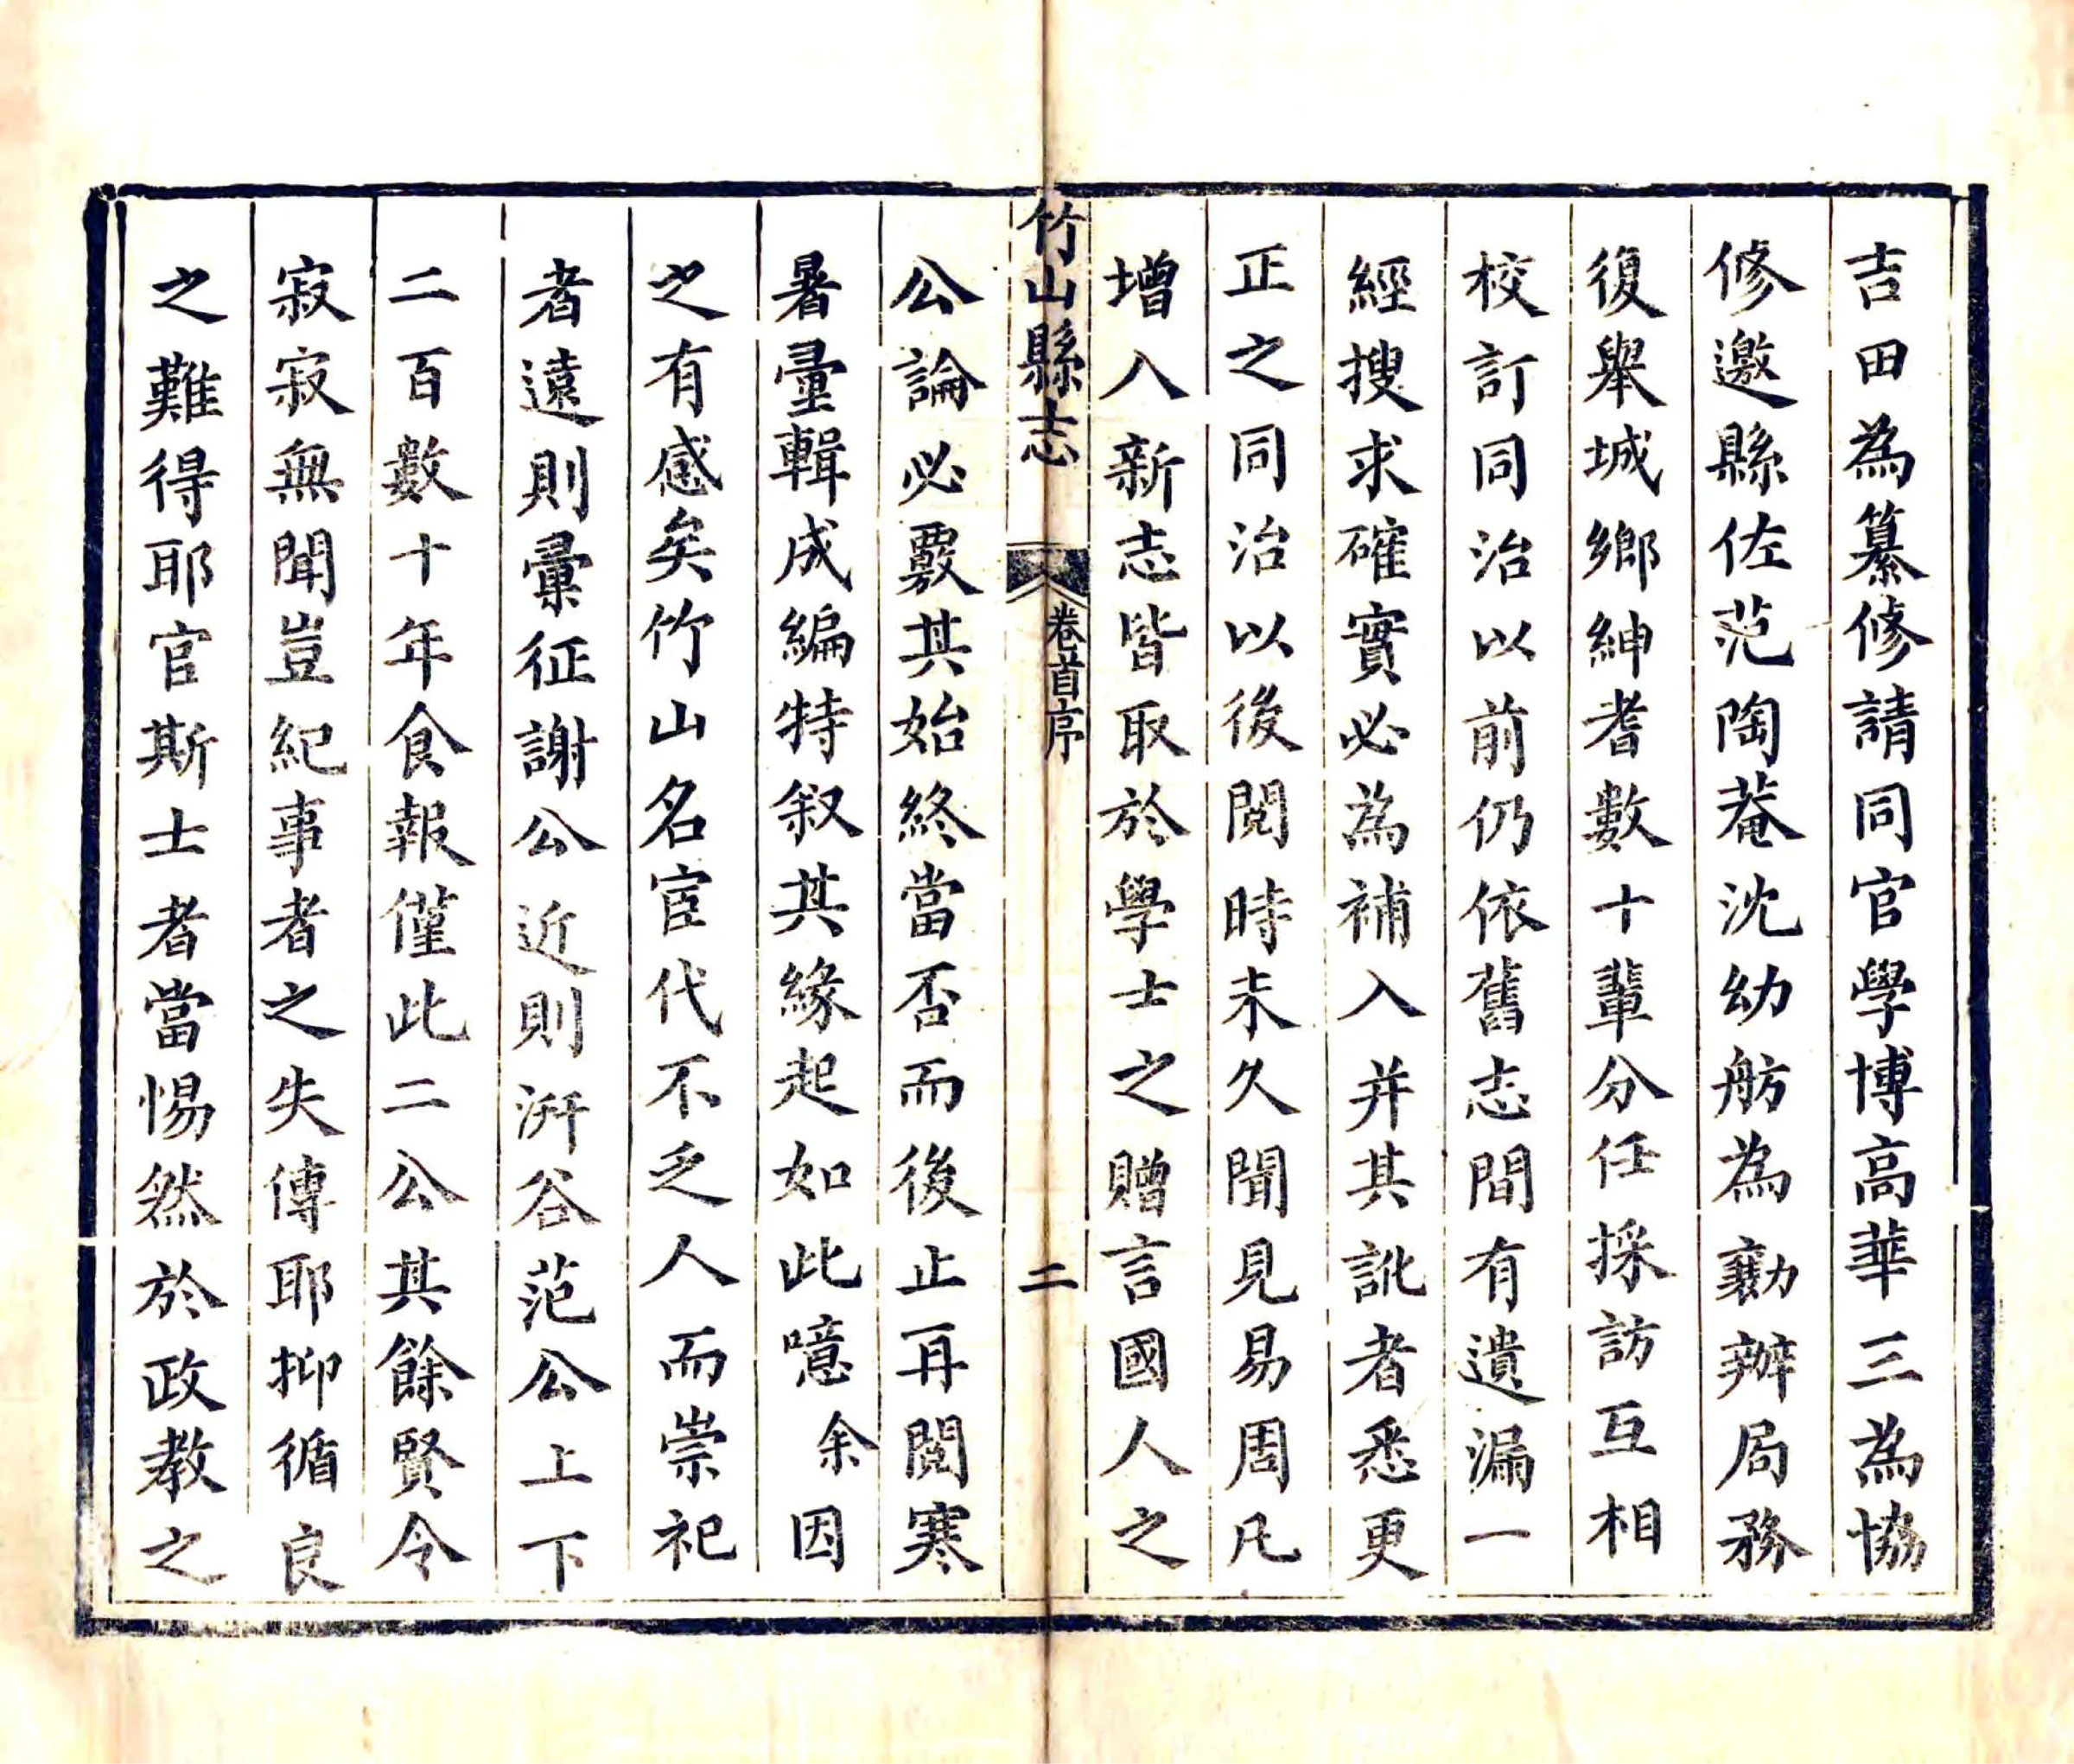 吉田為纂修請同官學博高華三為協
修邀縣佐范陶菴沈幼舫為勷辦局務
復舉城鄉紳耆數十輩分任採訪互相
校訂同治以前仍依舊志間有遺漏一
經搜求確實必為補入并其訛者悉更
正之同治以後閱時未久聞見易周凡
增入新志皆取於學士之贈言國人之
竹山縣志
卷首序
二
公論必覈其始終當否而後止再閱寒
暑彙輯成編特叙其緣起如此噫余因
之有感矣竹山名宦代不乏人而崇祀
者遠則彙征謝公近則汧谷范公上下
二百數十年食報僅此二公其餘賢令
寂寂無聞豈紀事者之失傳耶抑循良
之難得耶官斯士者當惕然於政教之